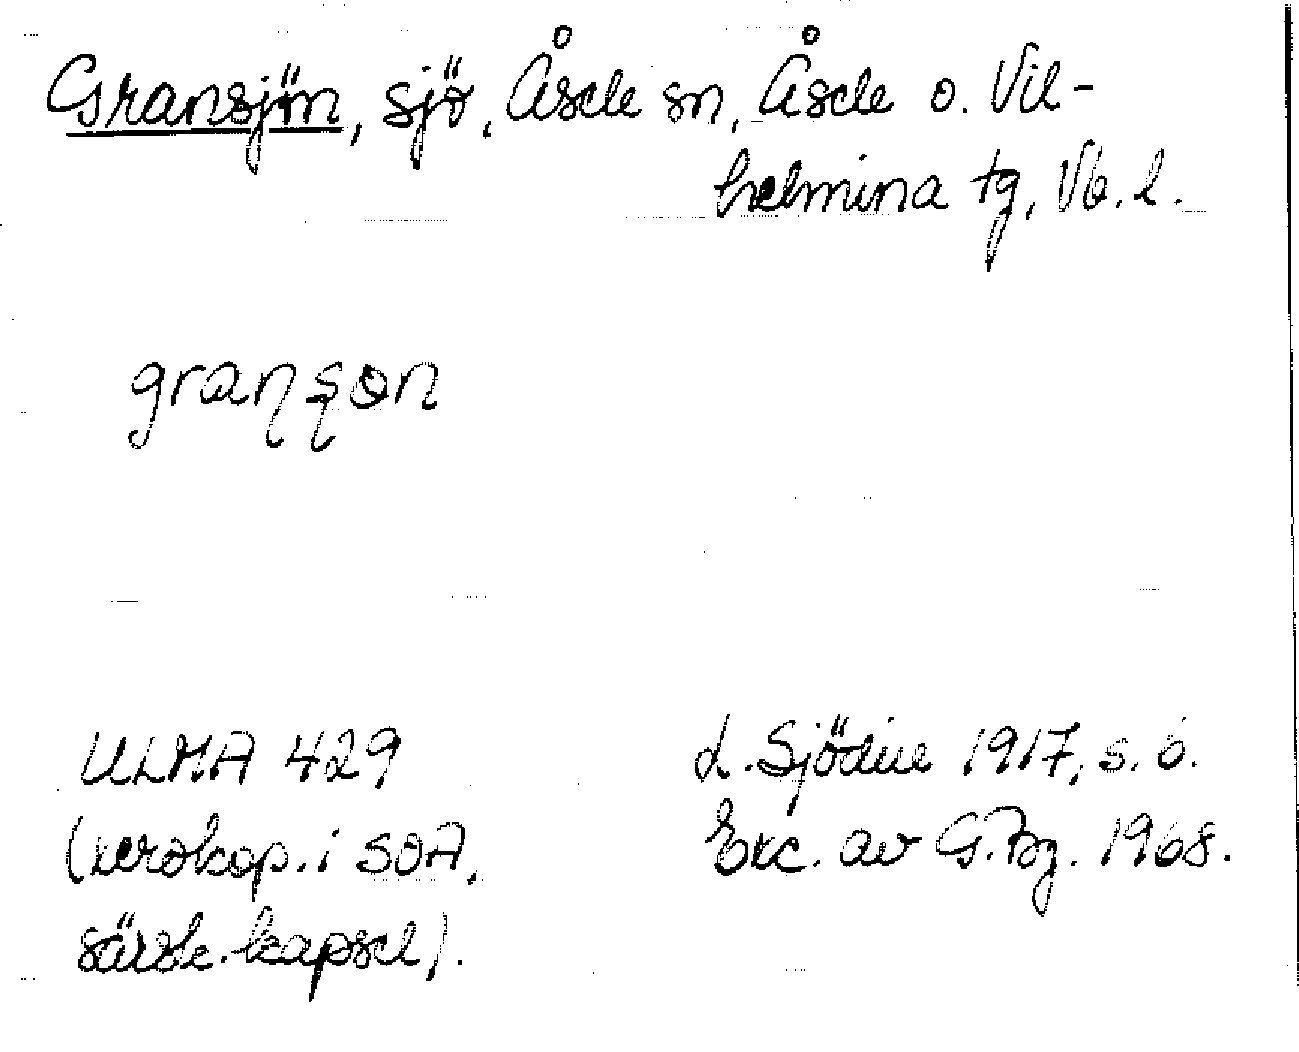 Gransjön, sjö, Åsele sn, Åsele o. Vil-
helmina tg, Vb. l.
granʂɵn
ULMA 429
(xerokop. i SOA,
särsk. kapsel).
L. Sjödin 1917, s. 6.
Exc. av G. Bg. 1968.